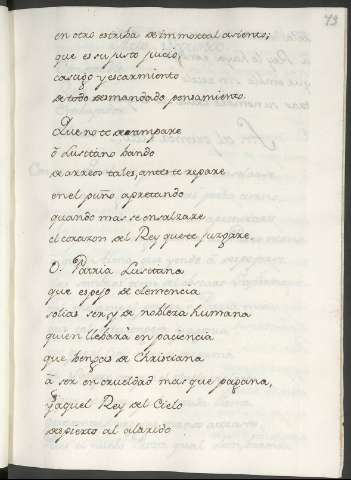 73
en otro estriba de immortal asiento;
que es su justo juicio,
castigo y escarmiento
de todo desmandado pensamiento.
Que no te desampare
ô Lusitano bando
de arreos tales, antes te repare
en el puño apretando
quando mas se ensalzare
el corazon del Rey que te juzgare.
O. Patria Lusitana
que espejo de clemencia
solias ser, y de nobleza humana
quien llebarà en paciencia
que bengas de Christiana
â ser en crueldad mas que pagana,
Y aquel Rey del Cielo
despierto al alarido